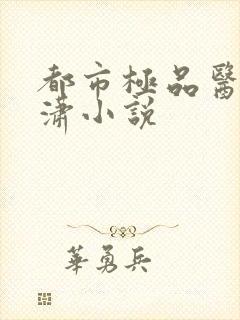 都市極品醫
瀟小說
華勇兵